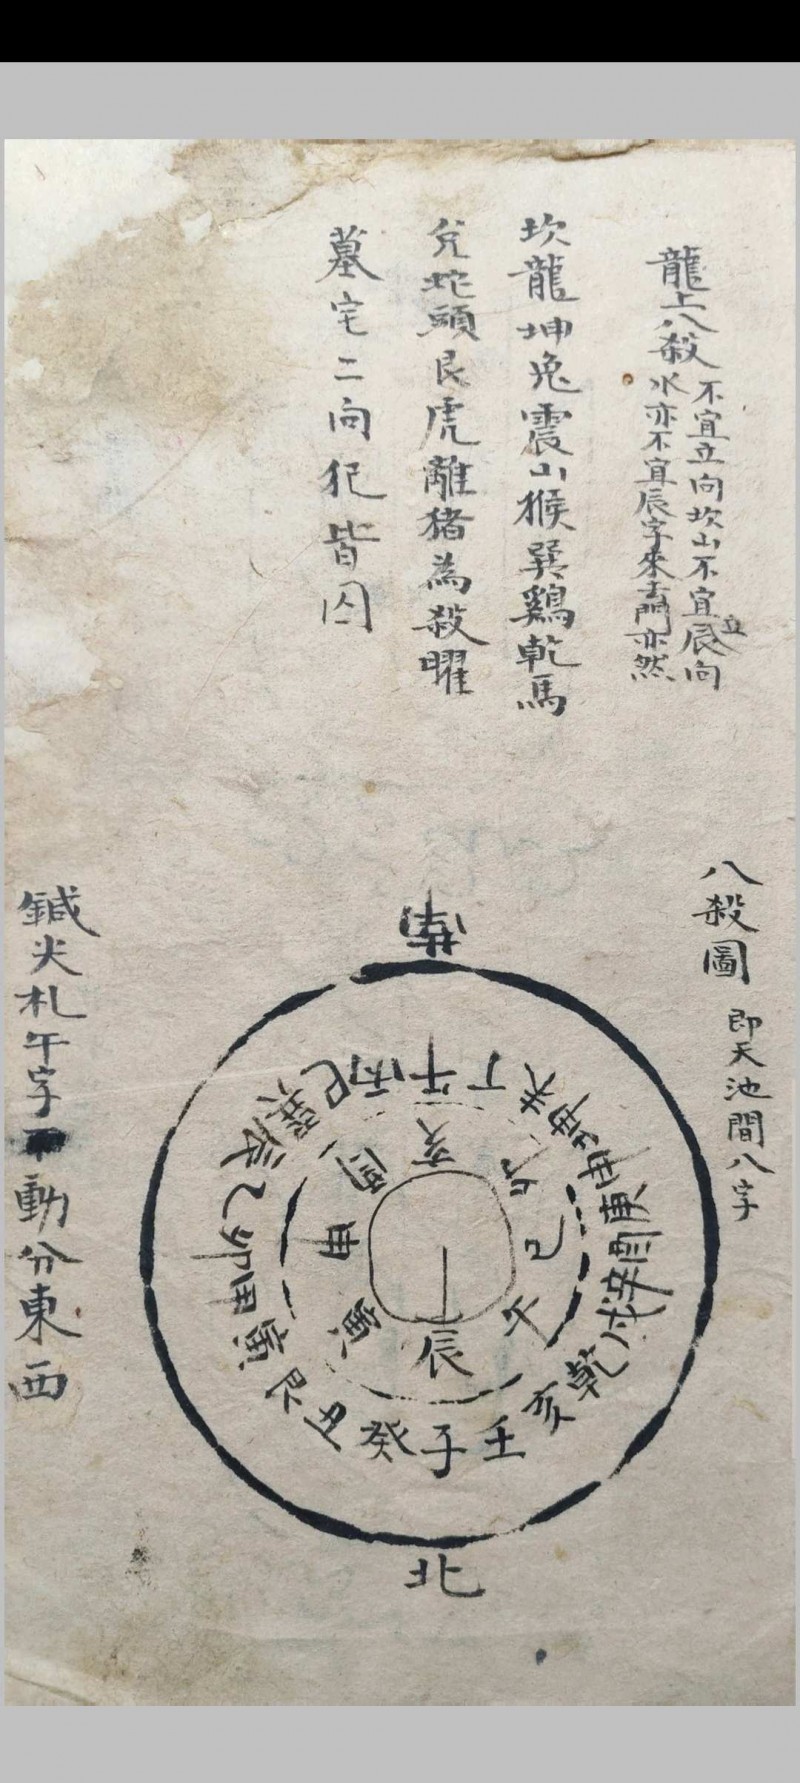 龍上八殺
不宜立向坎山不宜立辰向
水亦不宜辰字來去門亦然
坎龍坤兔震山猴巽鷄乾馬
兌蛇頭艮虎離猪為殺曜
墓宅二向犯皆囚
八殺圖
即天池間八字
南
午丁未坤申庚酉辛戌乾亥壬子癸丑艮寅甲卯乙辰巽巳丙
亥卯巳午辰寅申酉
北
鍼尖札午字不動分東西